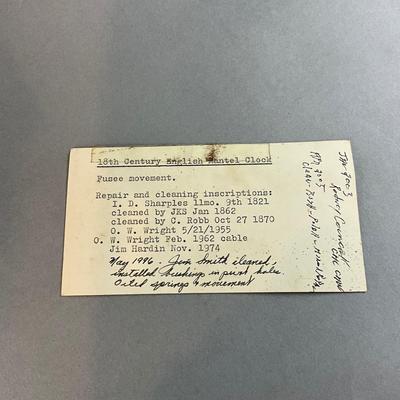 18th Century English Mantel Clock
Fusee movement.
Repair and cleaning inscriptions:
I. D. Sharples 11mo. 9th 1821
cleaned by JKS Jan 1862
cleaned by C. Robb Oct 27 1870
O. W. Wright 5/21/1955
O. W. Wright Feb. 1962 cable
Jim Hardin Nov. 1974
May 1996. Jim Smith cleaned,
installed bushings in pivot holes.
Oiled springs & movement
Jan 2003
Robert
2005
Clean